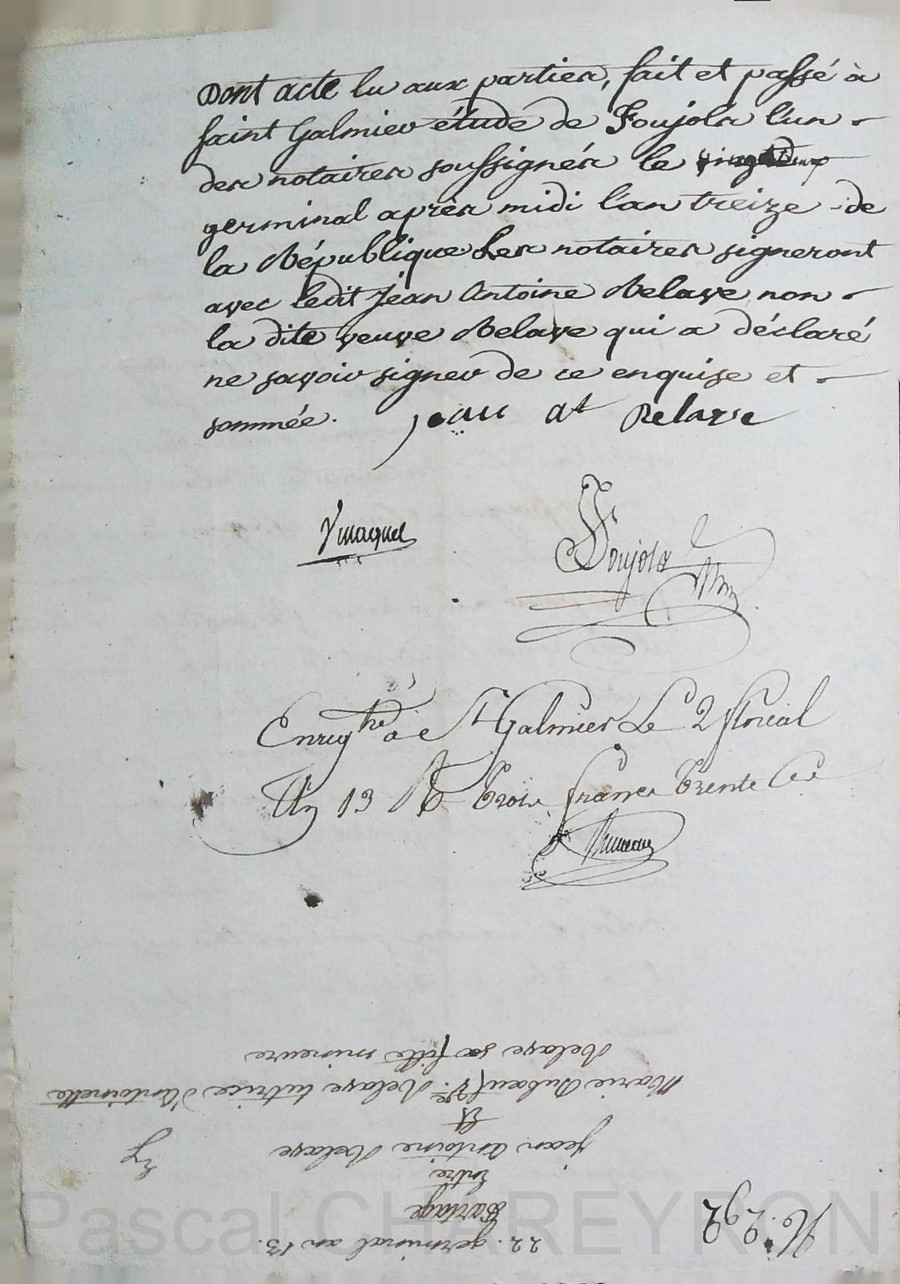 Dont acte lu aux parties, fait et passé à
saint Galmier étude de Foujols l'un
des notaires soussignés le vingt deux
germinal après midi l'an treize de
la République Les notaires signeront
avec ledit Jean Antoine Relave non
la dite veuve Relave qui a déclaré
ne savoir signer de ce enquise et
sommée. jean at Relave
Foujols
Enregtré à St Galmier Le 2 floreal
An 13 Rt trois francs trente ces
N°. 292
22. germinal an 13.
Partage
Entre
Jean Antoine Relave
Et
Marie Duboeuf Ve. Relave tutrice d'Antoinette
Relave sa fille mineure
Pascal CHAREYRON